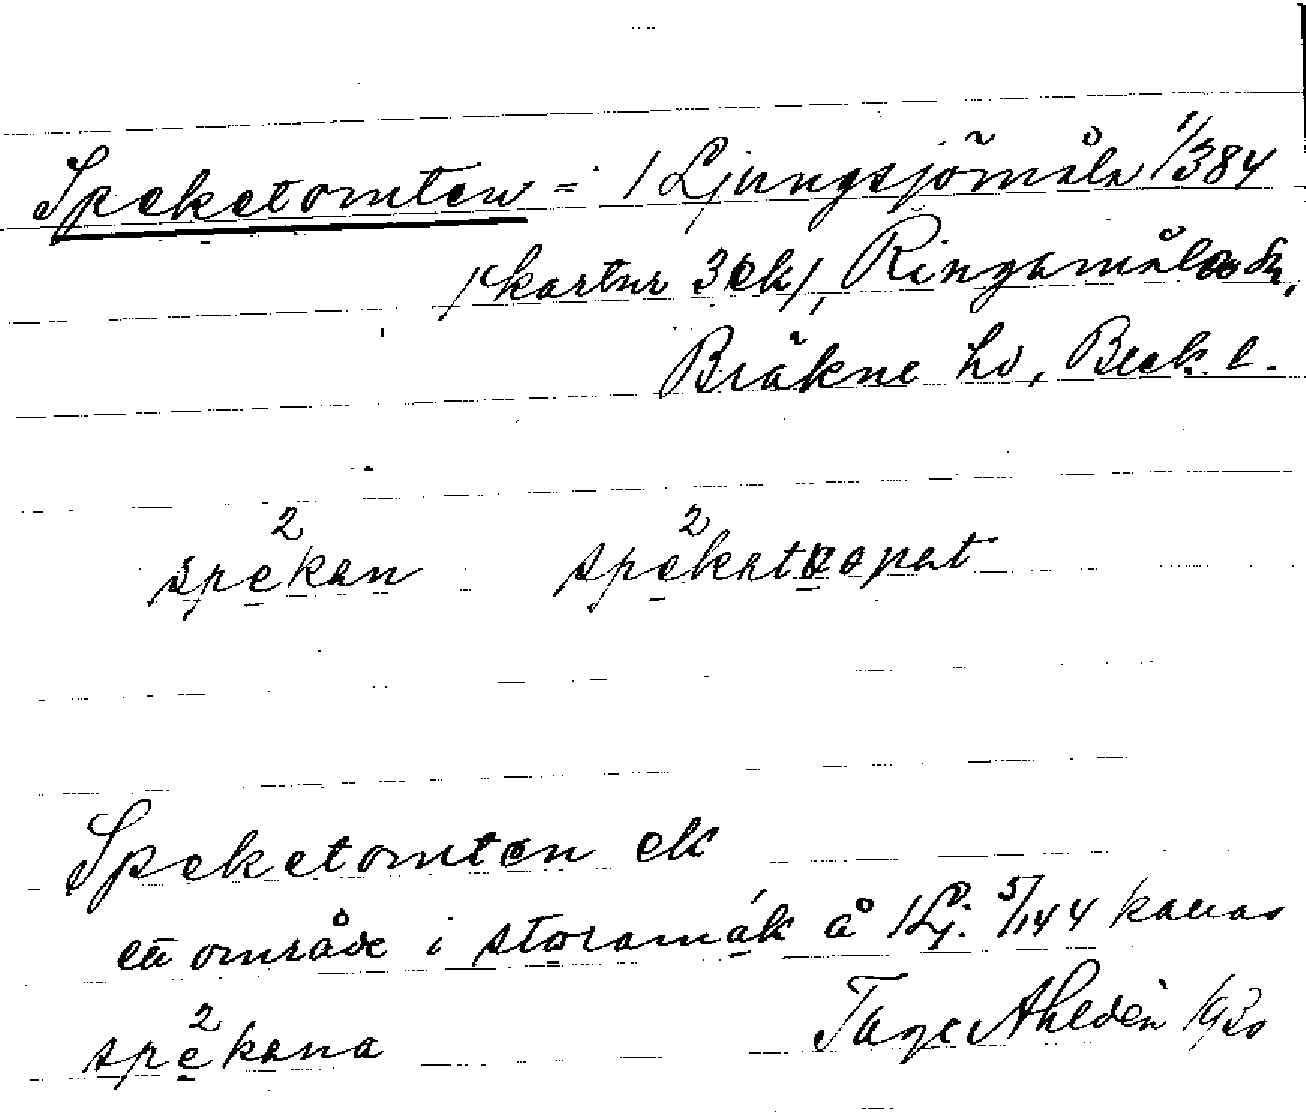 Speketomten = 1 Ljungsjömåla 1/384
/kartnr 3 ek/, Ringamåla sn,
Bräkne hd, Blek. l.
spe²kan spe²katoopat
Speketomten ek
ett område i storamák å 1 Lj. 5/144 kallas
spe²kana Tage Ahldén 1930